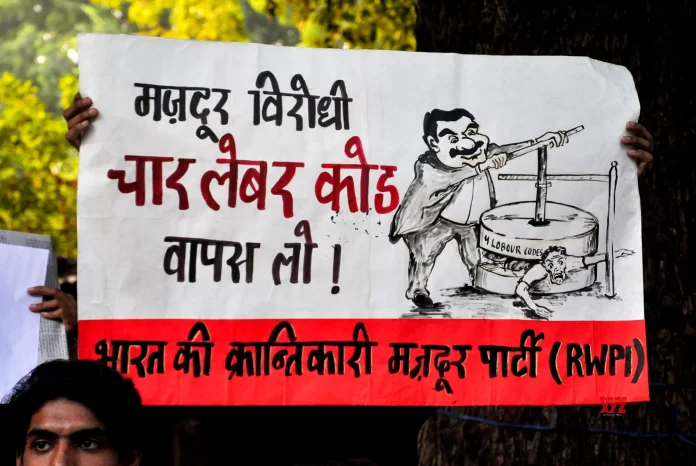 मज़दूर विरोधी
चार लेबर कोड
वापस लो !
4 LOBOUR CODES
भारत की क्रान्तिकारी मज़दूर पार्टी (RWPI)